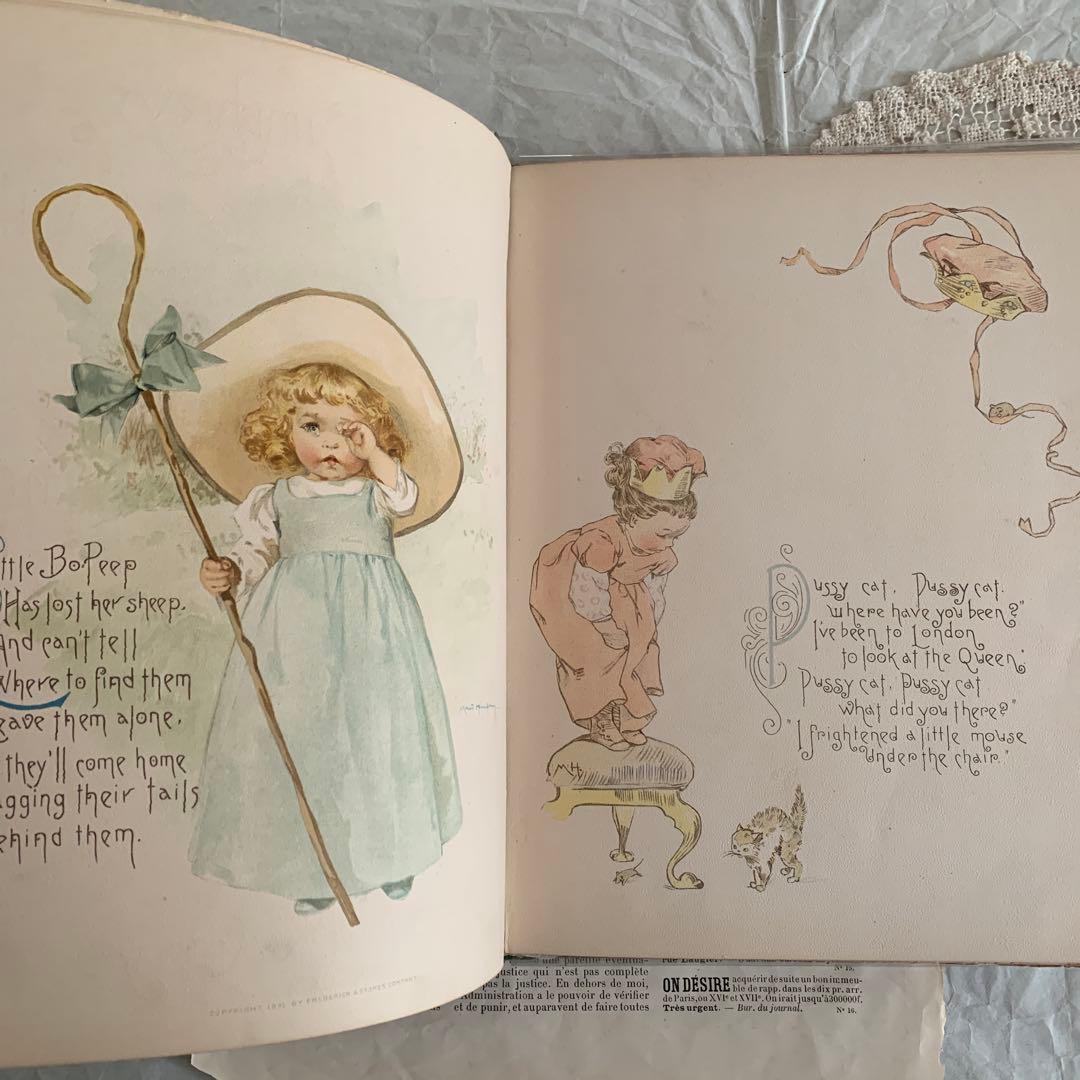 ttle Bo Peep
Has lost her sheep.
And can't tell
Where to find them
eave them alone,
they'll come home
gging their tails
ehind them.
COPYRIGHT 1891 BY FREDERICK A STOKES COMPANY
Pussy cat, Pussy cat.
where have you been?"
I've been to London
to look at the Queen"
Pussy cat, pussy cat
what did you there?"
"I frightened a little mouse
Under the chair."
MH
justice qui n'est pas complète
pas la justice. En dehors de moi,
dministration a le pouvoir de vérifier
et de punir, et auparavant de faire toutes
N° 15.
ON DÉSIRE acquérir de suite un bon immeu-
ble de rapp. dans les dix pr. arr.
de Paris, ou XVIe et XVIIe. On irait jusqu'à 300000f.
Très urgent. — Bur. du journal. N° 16.